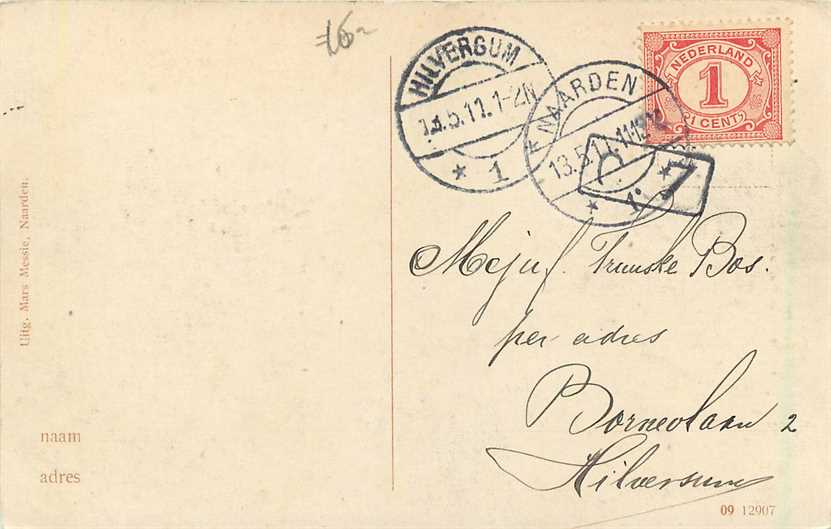 16-
HILVERSUM
13.5.11.1-2N
1
NAARDEN
13.5.11.11-12V
1
7
NEDERLAND
1
1 CENT
Uitg. Mars Messie, Naarden.
Mejuf. Truuske Bos.
per adres
Borneolaan 2
Hilversum
naam
adres
09 12907